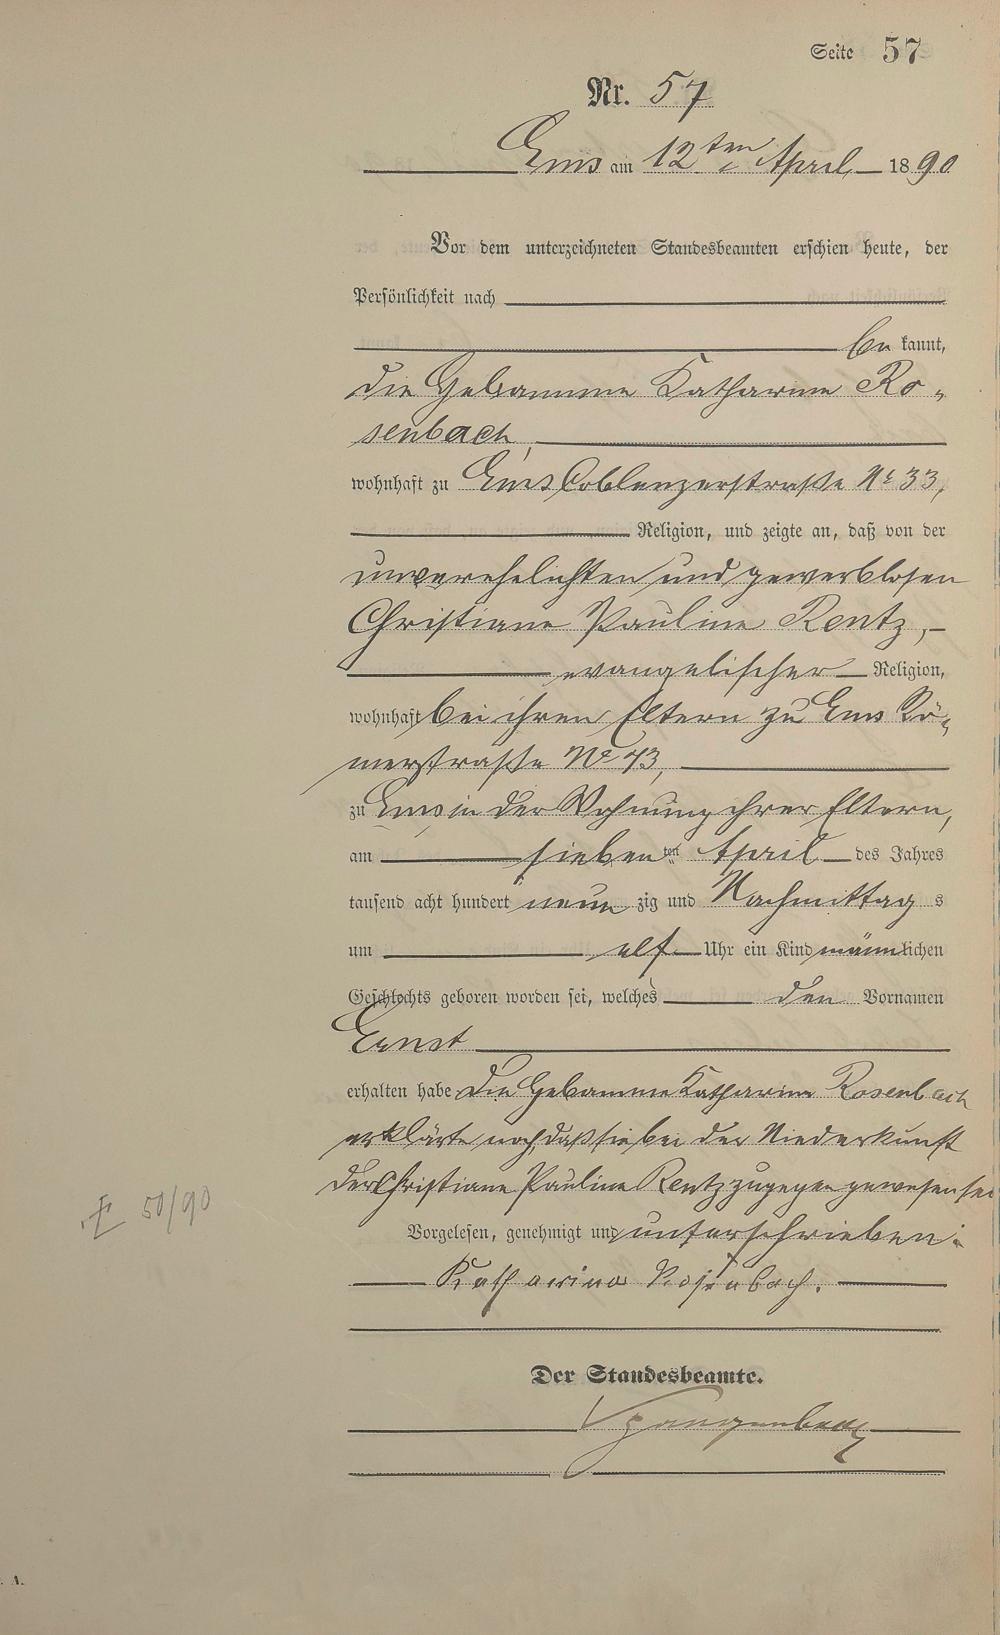 Seite 57
Nr. 57
Ems am 12ten April 1890
Vor dem unterzeichneten Standesbeamten erschien heute, der
Persönlichkeit nach
be kannt,
die Hebamme Katharine Ro-
senbach,
wohnhaft zu Ems Coblenzerstraße No 33,
Religion, und zeigte an, daß von der
unverehelichten und gewerblosen
Christiane Pauline Rentz,
evangelischer Religion,
wohnhaft bei ihren Eltern zu Ems Rö-
merstraße No 73,
zu Ems in der Wohnung ihrer Eltern,
am siebenten April des Jahres
tausend acht hundert neun zig und Nachmittag s
um elf Uhr ein Kind männlichen
Geschlechts geboren worden sei, welches den Vornamen
Ernst
erhalten habe Die Hebamme Katharine Rosenbach
erklärte noch, daß sie bei der Niederkunft
der Christiane Pauline Rentz zugegen gewesen sei
Vorgelesen, genehmigt und unterschrieben:
Katharina Rosenbach.
Der Standesbeamte.
Spangenberg
50/90
A.